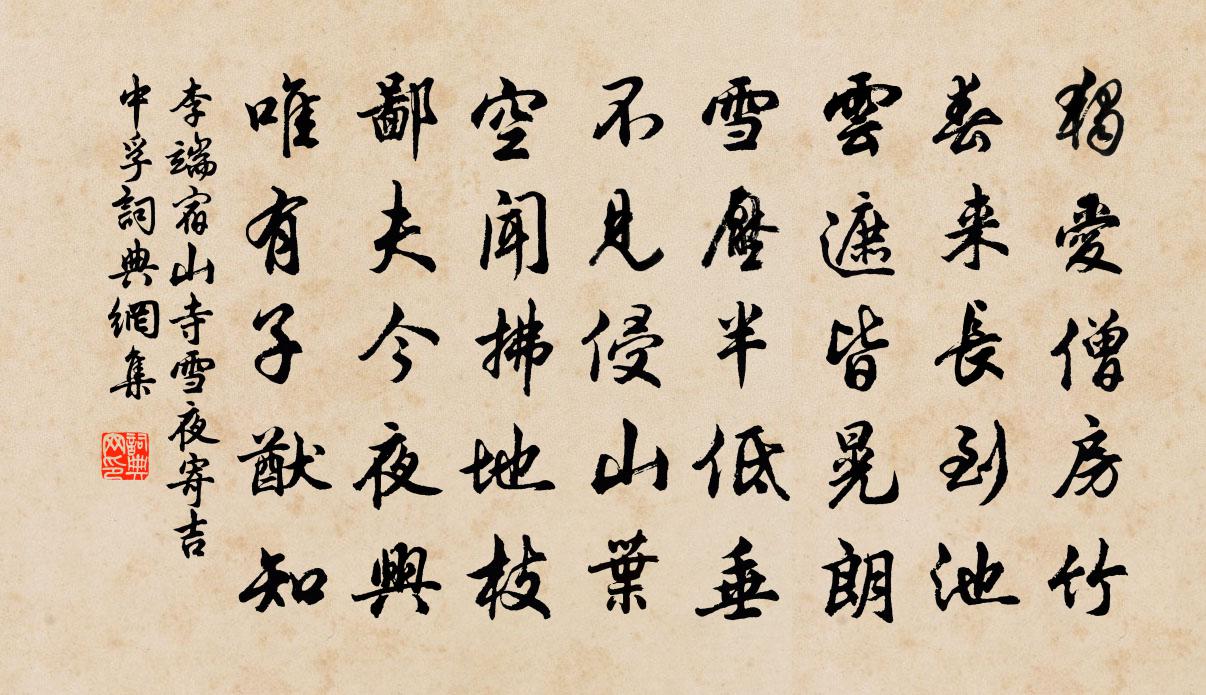 獨愛僧房竹
春来長到池
雲遮皆晃朗
雪壓半低垂
不見侵山葉
空聞拂地枝
鄙夫今夜興
唯有子猷知
李端宿山寺雪夜寄吉
中孚詞典網集
詞典
网印